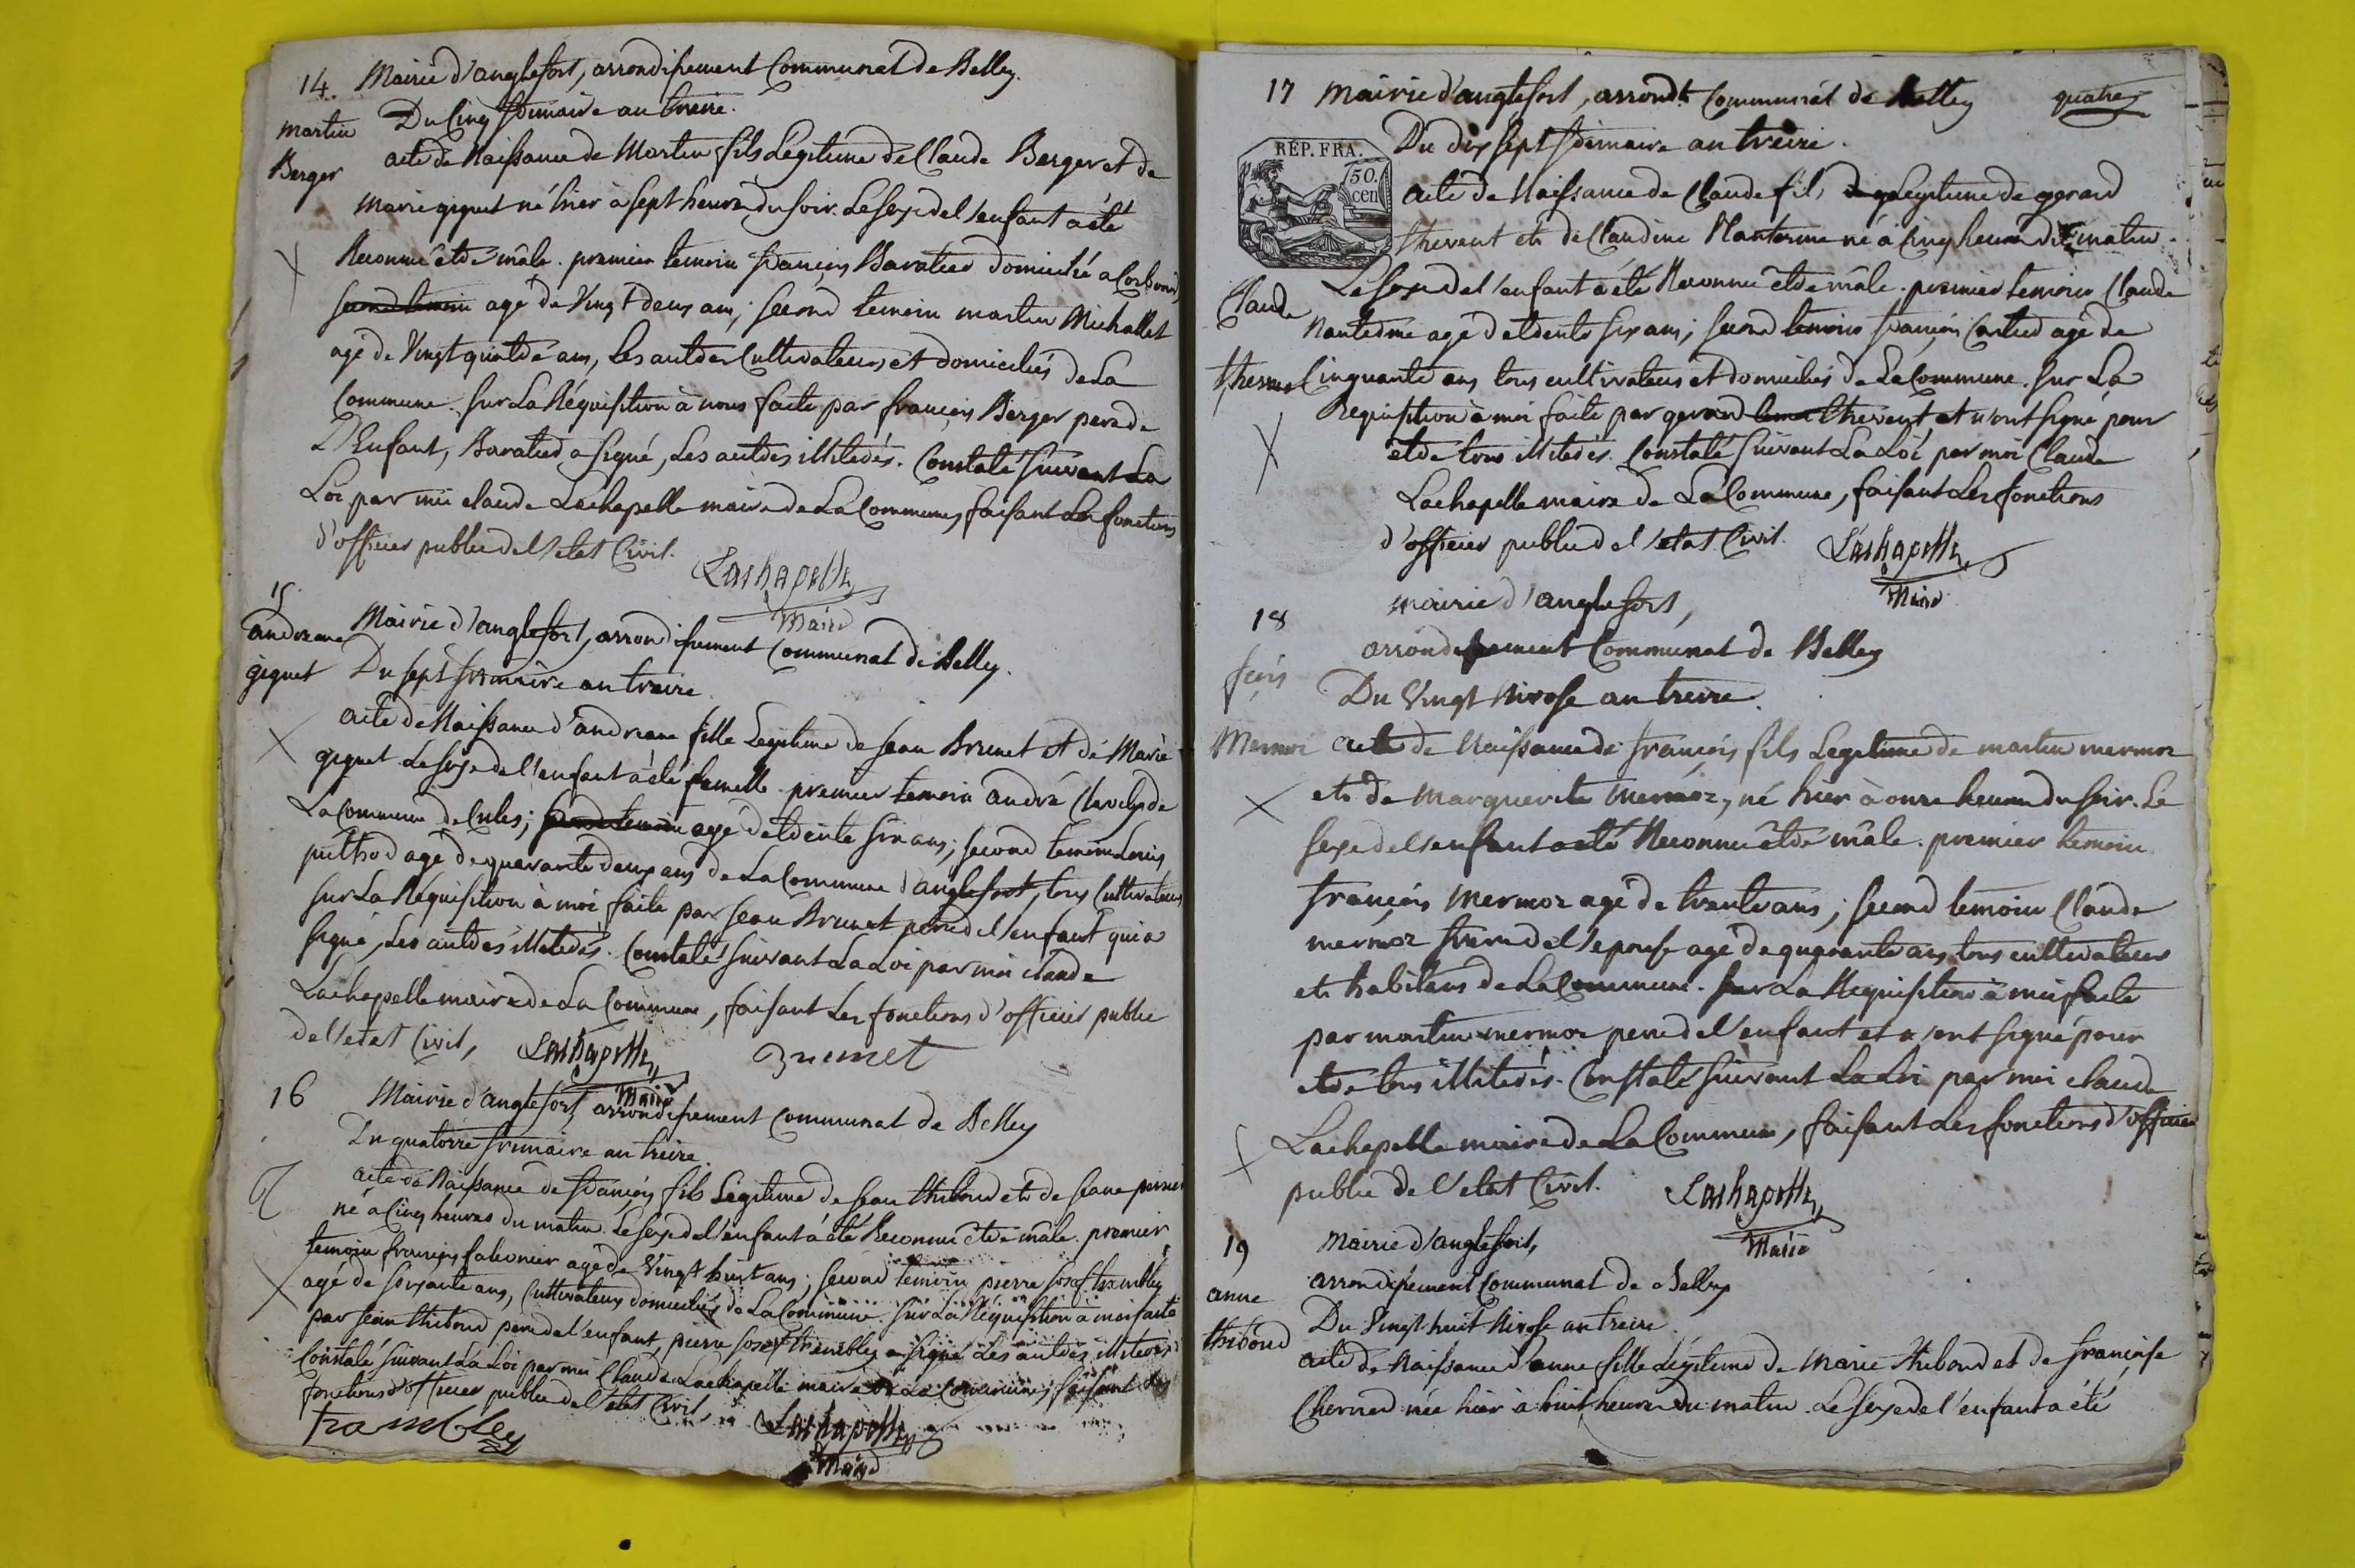 14. Mairie d'anglefort, arrondissement Communal de Belley.
Du Cinq frimaire an treize.
martin
Berger
acte de Naissance de Martin fils Legitime de Claude Berger et de
marie giguet né hier à sept heures du soir. Le sexe de l'enfant a été
Reconnu être mâle. premier temoin françois Baratier domicilié a Corbonod
second temoin agé de Vingt deux ans; second temoin martin Michallet
agé de Vingt quatre ans, les autres Cultivateurs et domiciliés de La
Commune. Sur La Réquisition à nous faite par françois Berger pere de
L'Enfant, Baratier a signé, Les autres illiterés. Constaté suivant La
Loi par moi claude Lachapelle maire de La Commune, faisant Les fonctions
d'officier public de l'etat Civil.
Lachapelle
Maire
15
Mairie d'anglefort, arrondissement Communal de Belley.
andreane
giguet
Du sept frimaire an treize.
acte de Naissance d'andreane fille Legitime de jean Brunet et de Marie
giguet. Le sexe de l'enfant a été femelle. premier temoin andré de
La Commune de Culoz; second temoin agé de trente six ans; second temoin Louis
puthod agé de quarante deux ans de La Commune d'anglefort, tous Cultivateurs
sur La Réquisition à moi faite par jean Brunet pere de l'enfant qui a
signé, Les autres illiterés. Constaté suivant La Loi par moi claude
Lachapelle maire de La Commune, faisant Les fonctions d'officier public
de l'etat Civil,
Lachapelle
Brunet
Maire
16 Mairie d'anglefort, arrondissement Communal de Belley
Du quatorze frimaire an treize.
acte de Naissance de françois fils Legitime de jean thiboud et de jeane
né a Cinq heures du matin. Le sexe de l'enfant a été Reconnu être mâle. premier
temoin françois falconier agé de Vingt huit ans; second temoin pierre josef trambley
agé de soixante ans, Cultivateurs domiciliés de La Commune. Sur La Réquisition à moi faite
par jean thiboud pere de l'enfant, pierre josef trambley a signé Les autres illiterés
Constaté suivant La Loi par moi Claude Lachapelle maire de La Commune, faisant Les
fonctions d'officier public de l'etat Civil,
trambley
Lachapelle
Maire
17 Mairie d'anglefort, arrondt. Communal de Belley
quatre
Du dix sept frimaire an treize.
RÉP. FRA.
50.
cen
acte de Naissance de Claude fils Legitime de gerard
thevent et de Claudine Nanterme né à Cinq heures du matin.
Claude
Le sexe de l'enfant a été Reconnu être mâle. premier temoin Claude
Nanterme agé de trente six ans; second temoin françois agé de
Cinquante ans tous cultivateurs et domiciliés de La Commune. Sur La
Requisition à moi faite par gerard thevent et n'ont signé pour
être tous illiterés. Constaté suivant La Loi par moi Claude
Lachapelle maire de La Commune, faisant Les fonctions
d'officier public de l'etat Civil.
Lachapelle
Maire
18
mairie d'anglefort,
arrondissement Communal de Belley
fçois
Du Vingt Nivose an treize.
Mermoz
acte de Naissance de françois fils Legitime de martin mermoz
et de Marguerite mermoz, né hier à onze heures du soir. Le
sexe de l'enfant a été Reconnu être mâle. premier temoin
françois mermoz agé de trente ans; second temoin Claude
mermoz frere de l'epouse agé de quarante ans tous cultivateurs
et habitans de La Commune. Sur La Requisition à moi faite
par martin mermoz pere de l'enfant et n'ont signé pour
être tous illiterés. Constaté suivant La Loi par moi claude
Lachapelle maire de La Commune, faisant Les fonctions d'officier
public de l'etat Civil.
Lachapelle
Maire
19
mairie d'anglefort,
arrondissement Communal de Belley
anne
thiboud
Du Vingt huit Nivose an treize.
acte de Naissance d'anne fille Légitime de Marie thiboud et de françoise
née hier à huit heures du matin. Le sexe de l'enfant a été